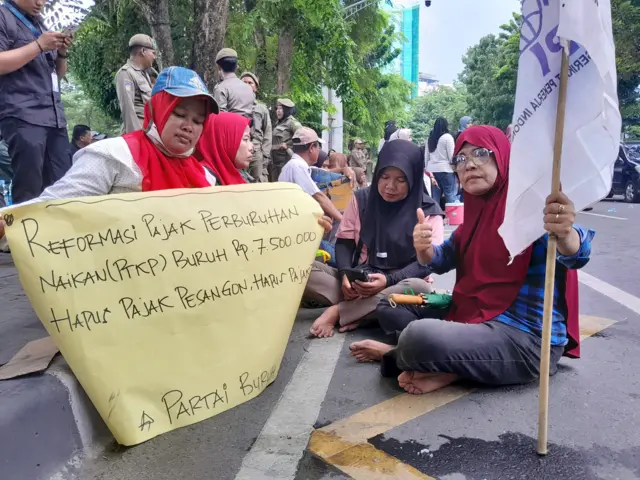 REFORMASI PAJAK PERBURUHAN
NAIKAN (PTKP) BURUH RP. 7.500.000
HAPUS PAJAK PESANGON, HAPUS PAJAK
PARTAI BURUH